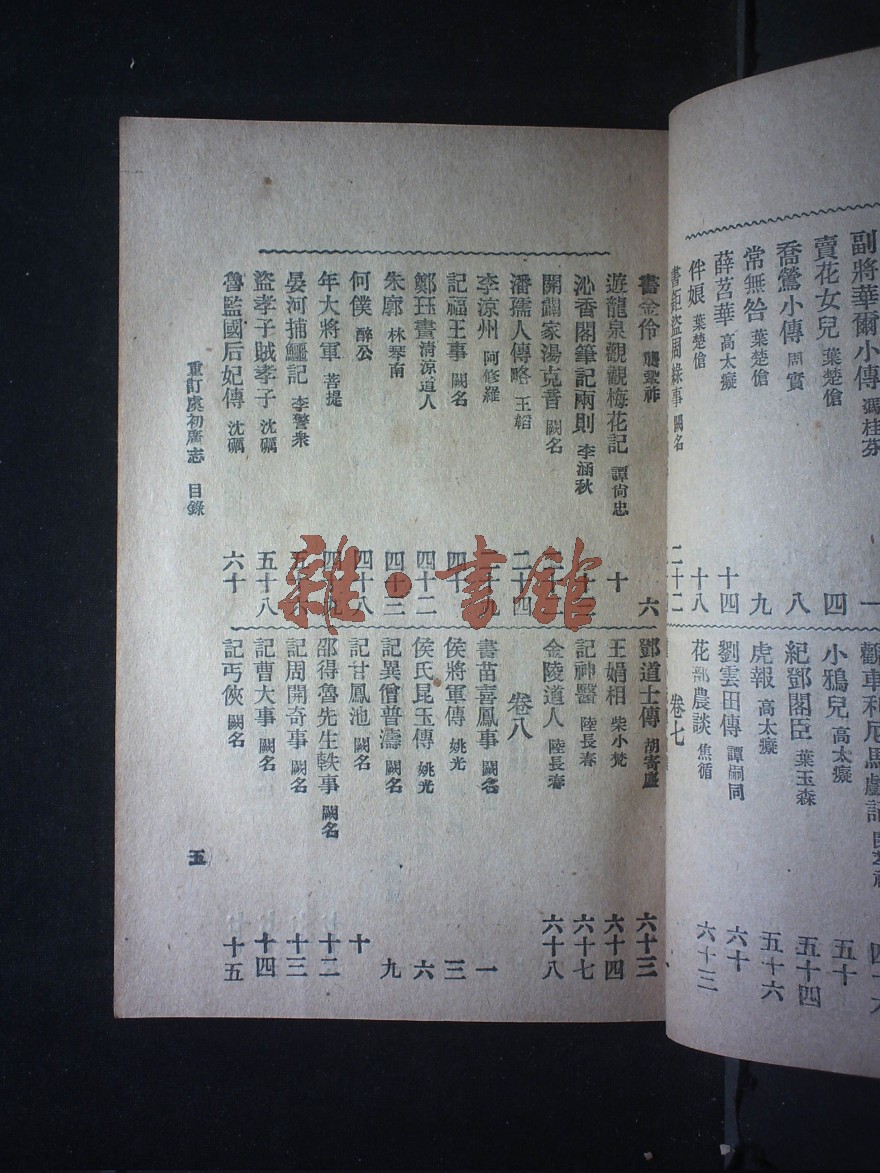 副將華爾小傳 馮桂芬 一
賣花女兒 葉楚傖 四
喬鶯小傳 周實 八
常無咎 葉楚傖 九
薛苕華 高太癡 十四
伴娘 葉楚傖 十八
書拒盜周綠事 闕名 二十二
小鴉兒 高太癡 五十
紀鄧閣臣 葉玉森 五十四
虎報 高太癡 五十六
劉雲田傳 譚嗣同 六十
花部農談 焦循 六十三
卷七
書金伶 龔鞏祚 六
遊龍泉觀觀梅花記 譚尙忠 十
沁香閣筆記兩則 李涵秋
開闢家湯克晉 闕名
潘孺人傳略 王韜 二十四
李涼州 阿修羅
記福王事 闕名 四十
鄭珏晝 清涼道人 四十二
朱廓 林琴南 四十三
何僕 醉公 四十八
年大將軍 菩提
晏河捕鱷記 李警衆
盜孝子賊孝子 沈礪 五十八
魯監國后妃傳 沈礪 六十
鄧道士傳 胡寄塵 六十三
王娟相 柴小梵 六十四
記神醫 陸長春 六十七
金陵道人 陸長春 六十八
卷八
書苗喜鳳事 闕名 一
侯將軍傳 姚光 三
侯氏昆玉傳 姚光 六
記異僧普濤 闕名 九
記甘鳳池 闕名 十
邵得魯先生軼事 闕名 十二
記周開奇事 闕名 十三
記曹大事 闕名 十四
記丐俠 闕名 十五
重訂虞初廣志 目錄
五
雜·書館